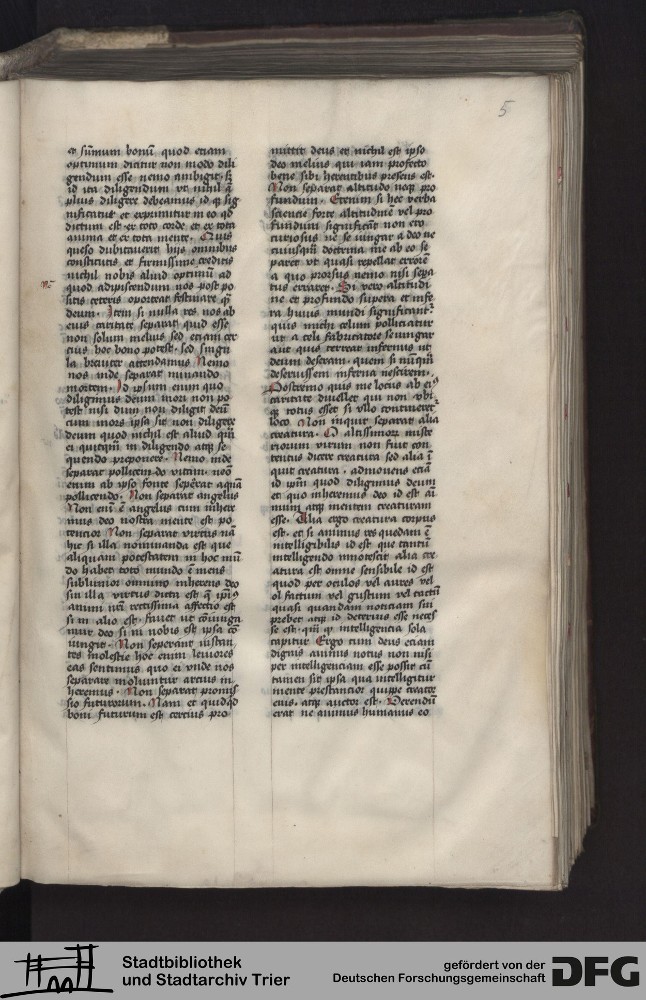 5
est summum bonū quod etiam
optimum dicitur non modo dili
gendum esse nemo ambigit. sꝫ
id ita diligendum vt nihil
plius diligere debeamus id qͥ sig
nificatur et exprimitur in eo qd
dictum est ex toto corde et ex tota
anima et ex tota mente. Quis
queso dubitauerit hijs omnibus
constitutis et firmissime creditis
nichil nobis aliud optimū ad
quod adipiscendum nos post po
sitis ceteris oporteat festinare qͣꝫ
deum. Item si nulla res nos ab
eius caritate separat quid esse
non solum melius sed etiam cer
cius hoc bono potest. sed singu
la breuiter attendamus Nemo
nos inde separat minando
mortem. Id ipsum enim quo
diligimus deum mori non po
test nisi dum non diligit deū
cum mors ipsa sit non diligere
deum quod nichil est aliud qͣꝫ
ei quitqͣꝫ in diligendo atqꝫ se
quendo preponere. Nemo inde
separat pollicendo vitam. nēo
enim ab ipso fonte seperat aquā
pollicendo. Non separat angelus
Non enī ē angelus cum inhere
mus deo nostra mente est po
tencior Non separat virtus nā
hic si illa nominanda est que
aliquam potestatem in hoc mū
do habet toto mundo ē mens
sublimior omnino inherens deo
sin illa virtus dicta est q̄ ipīꝰ
animi nrī rectissima affectio est
si in alio est. fauet ut cōiunga
mur deo si in nobis est ipsa cō
iungit. Non seperant instan
tes molestie hoc enim leuiores
eas sentimus quo ei vnde nos
separare moliuntur arcius in
heremus. Non separat promis
sio futurorum. Nam et quidqd
boni futurum est cercius pro
mittit deus et nichil est ipso
deo melius qui iam profecto
bene sibi herentibus presens est.
Non separat altitudo neqꝫ pro
fundum. Etenim si hec verba
sciencie forte altitudinē vel pro
fundum significāt non ero
curiosus ne se iungar a deo ne
cuiusqͣꝫ doctrina me ab eo se
paret vt quasi repellat errorē
a quo prorsus nemo nisi sepa
tus erraret. Si vero altitudi
ne et profundo supera et infe
ra huius mundi significantur
quis michi celum polliciatur
ut a celi fabricatore se iungar
aut quis terreat infernus ut
deum deseram. quem si nūqͣꝫ
deseruissem inferna nescirem.
Postremo quis me locus ab eiꝰ
caritate diuellet qui non vbi
qꝫ totus esset si vllo contineret
loco. Non inquit separat alia
creatura. O altissimorum miste
riorum virum non fuit con
tentus dicere creatura sed alia i
quit creatura. admonens etiā
id ipm̄ quod diligimus deum
et quo inheremus deo id est ai
mum atqꝫ mentem creaturam
esse. Alia ergo creatura corpus
est. et si animus res quedam ē
intelligibilis id est que tantū
intelligendo innotescit alia cre
atura est omne sensibile id est
quod per oculos vel aures vel
ol factum vel gustum vel tactū
quasi quandam noticiam sui
prebet atqꝫ id deterius esse neces
se est. qͣꝫ qͩ intelligencia sola
capitur Ergo cum deus eciam
dignis animis notus non nisi
per intelligenciam esse possit cū
tamen sit ipsa qua intelligitur
mente prestancior quippe creator
eius. atqꝫ auctor est. Verendū
erat ne animus humanus eo
Stadtbibliothek
und Stadtarchiv Trier
gefördert von der
Deutschen Forschungsgemeinschaft
DFG